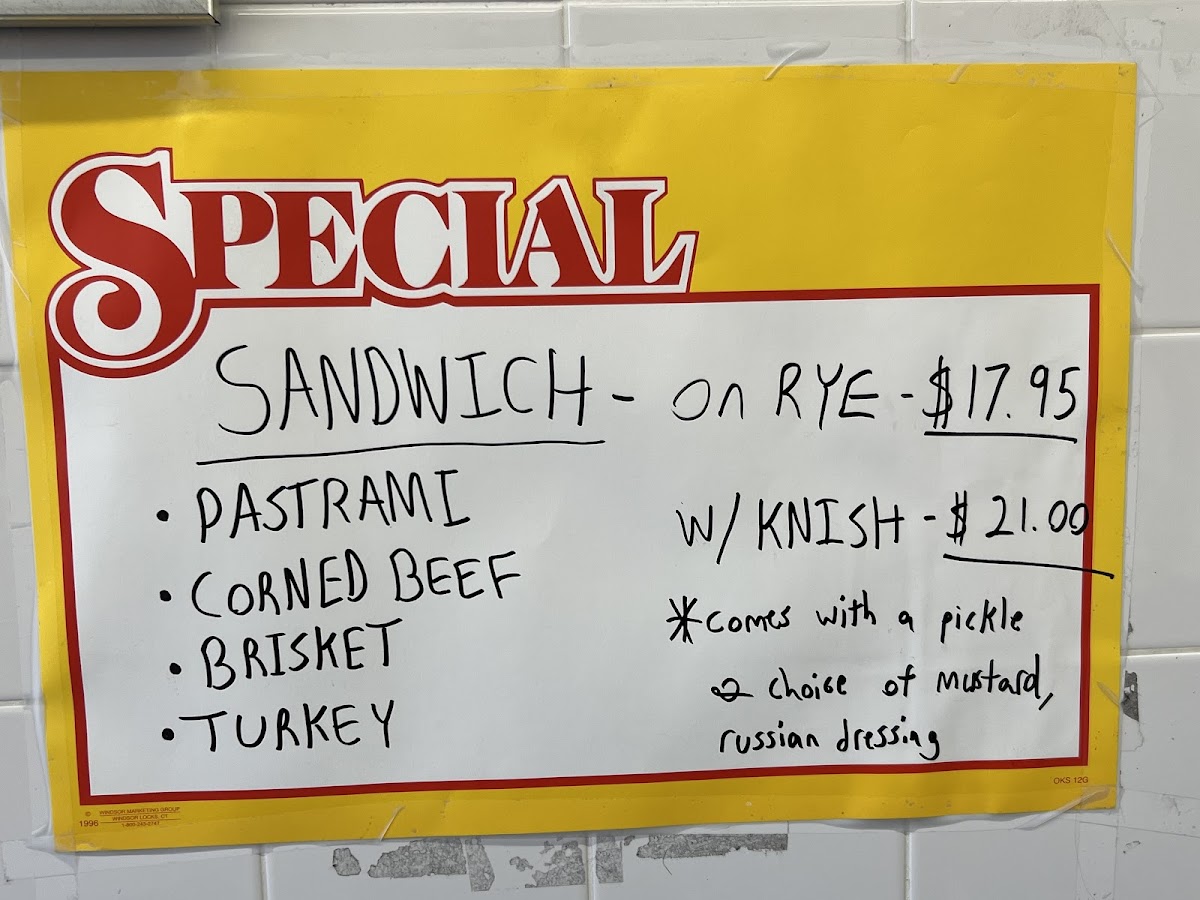 SPECIAL
SANDWICH - on RYE - $17.95
• PASTRAMI
• CORNED BEEF
• BRISKET
• TURKEY
W/ KNISH - $21.00
*comes with a pickle
& choice of mustard,
russian dressing
OKS 12G
© 1996 WINDSOR MARKETING GROUP
WINDSOR LOCKS, CT
1-800-243-0747